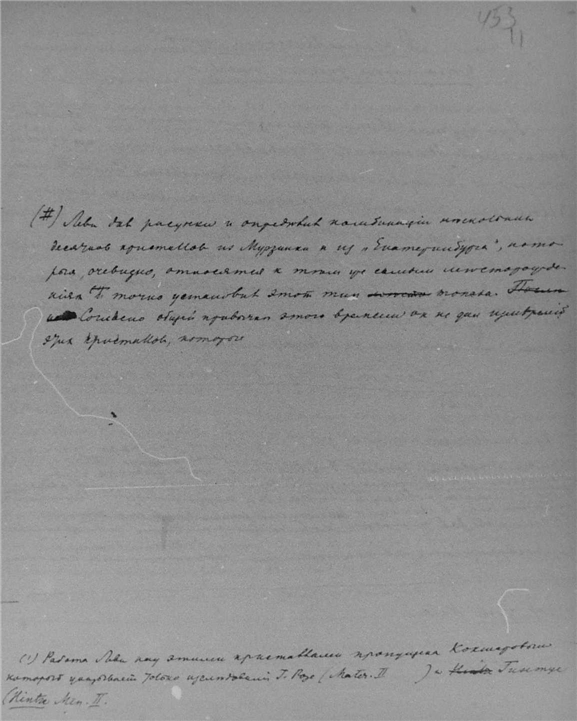 453
11
(#) Леви дав рисунки и определив комбинаціи нескольких
десятков кристаллов из Мурзинки и из „Екатеринбурга", кото-
рыя, очевидно, относятся к тем же самым месторожде-
ниям точно установив этот тип топаза.
Согласно общей привычке этого времени он не дал
этих кристаллов, которое
(1) Работа Леви над этими кристаллами Кокшаровым
который указывает только Г. Розе (Mater. II ) и Гинтце
(Hintze Min. II.